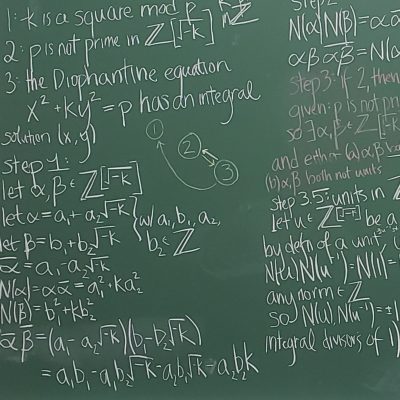 1: -k is a square mod p
2: p is not prime in ℤ[√-k]
3: the Diophantine equation
x²+ky²=p has an integral
solution (x,y)
1
2
3
step 1:
let α,β∈ℤ[√-k]
let α=a₁+a₂√-k
let β=b₁+b₂√-k
w/a₁,b₁,a₂,
b₂∈ℤ
ᾱ=a₁-a₂√-k
N(α)=αᾱ=a₁²+ka₂²
N(β)=b₁²+kb₂²
ᾱβ̄=(a₁-a₂√-k)(b₁-b₂√-k)
=a₁b₁-a₁b₂√-k-a₂b₁√-k-a₂b₂k
step 2:
N(α)N(β)=αα
αβ αβ=N(α
step 3: if 2, then
given: p is not pri
so ∃α,β∈ℤ[√-k
and either (a)αβ
(b)α,β both not units
step 3.5: units in ℤ
let u∈ℤ[√-k] be a
by defn of a unit,
N(u)N(u⁻¹)=N(1)=
any norm∈ℤ
so N(u),N(u⁻¹)=±1
integral divisors of 1)